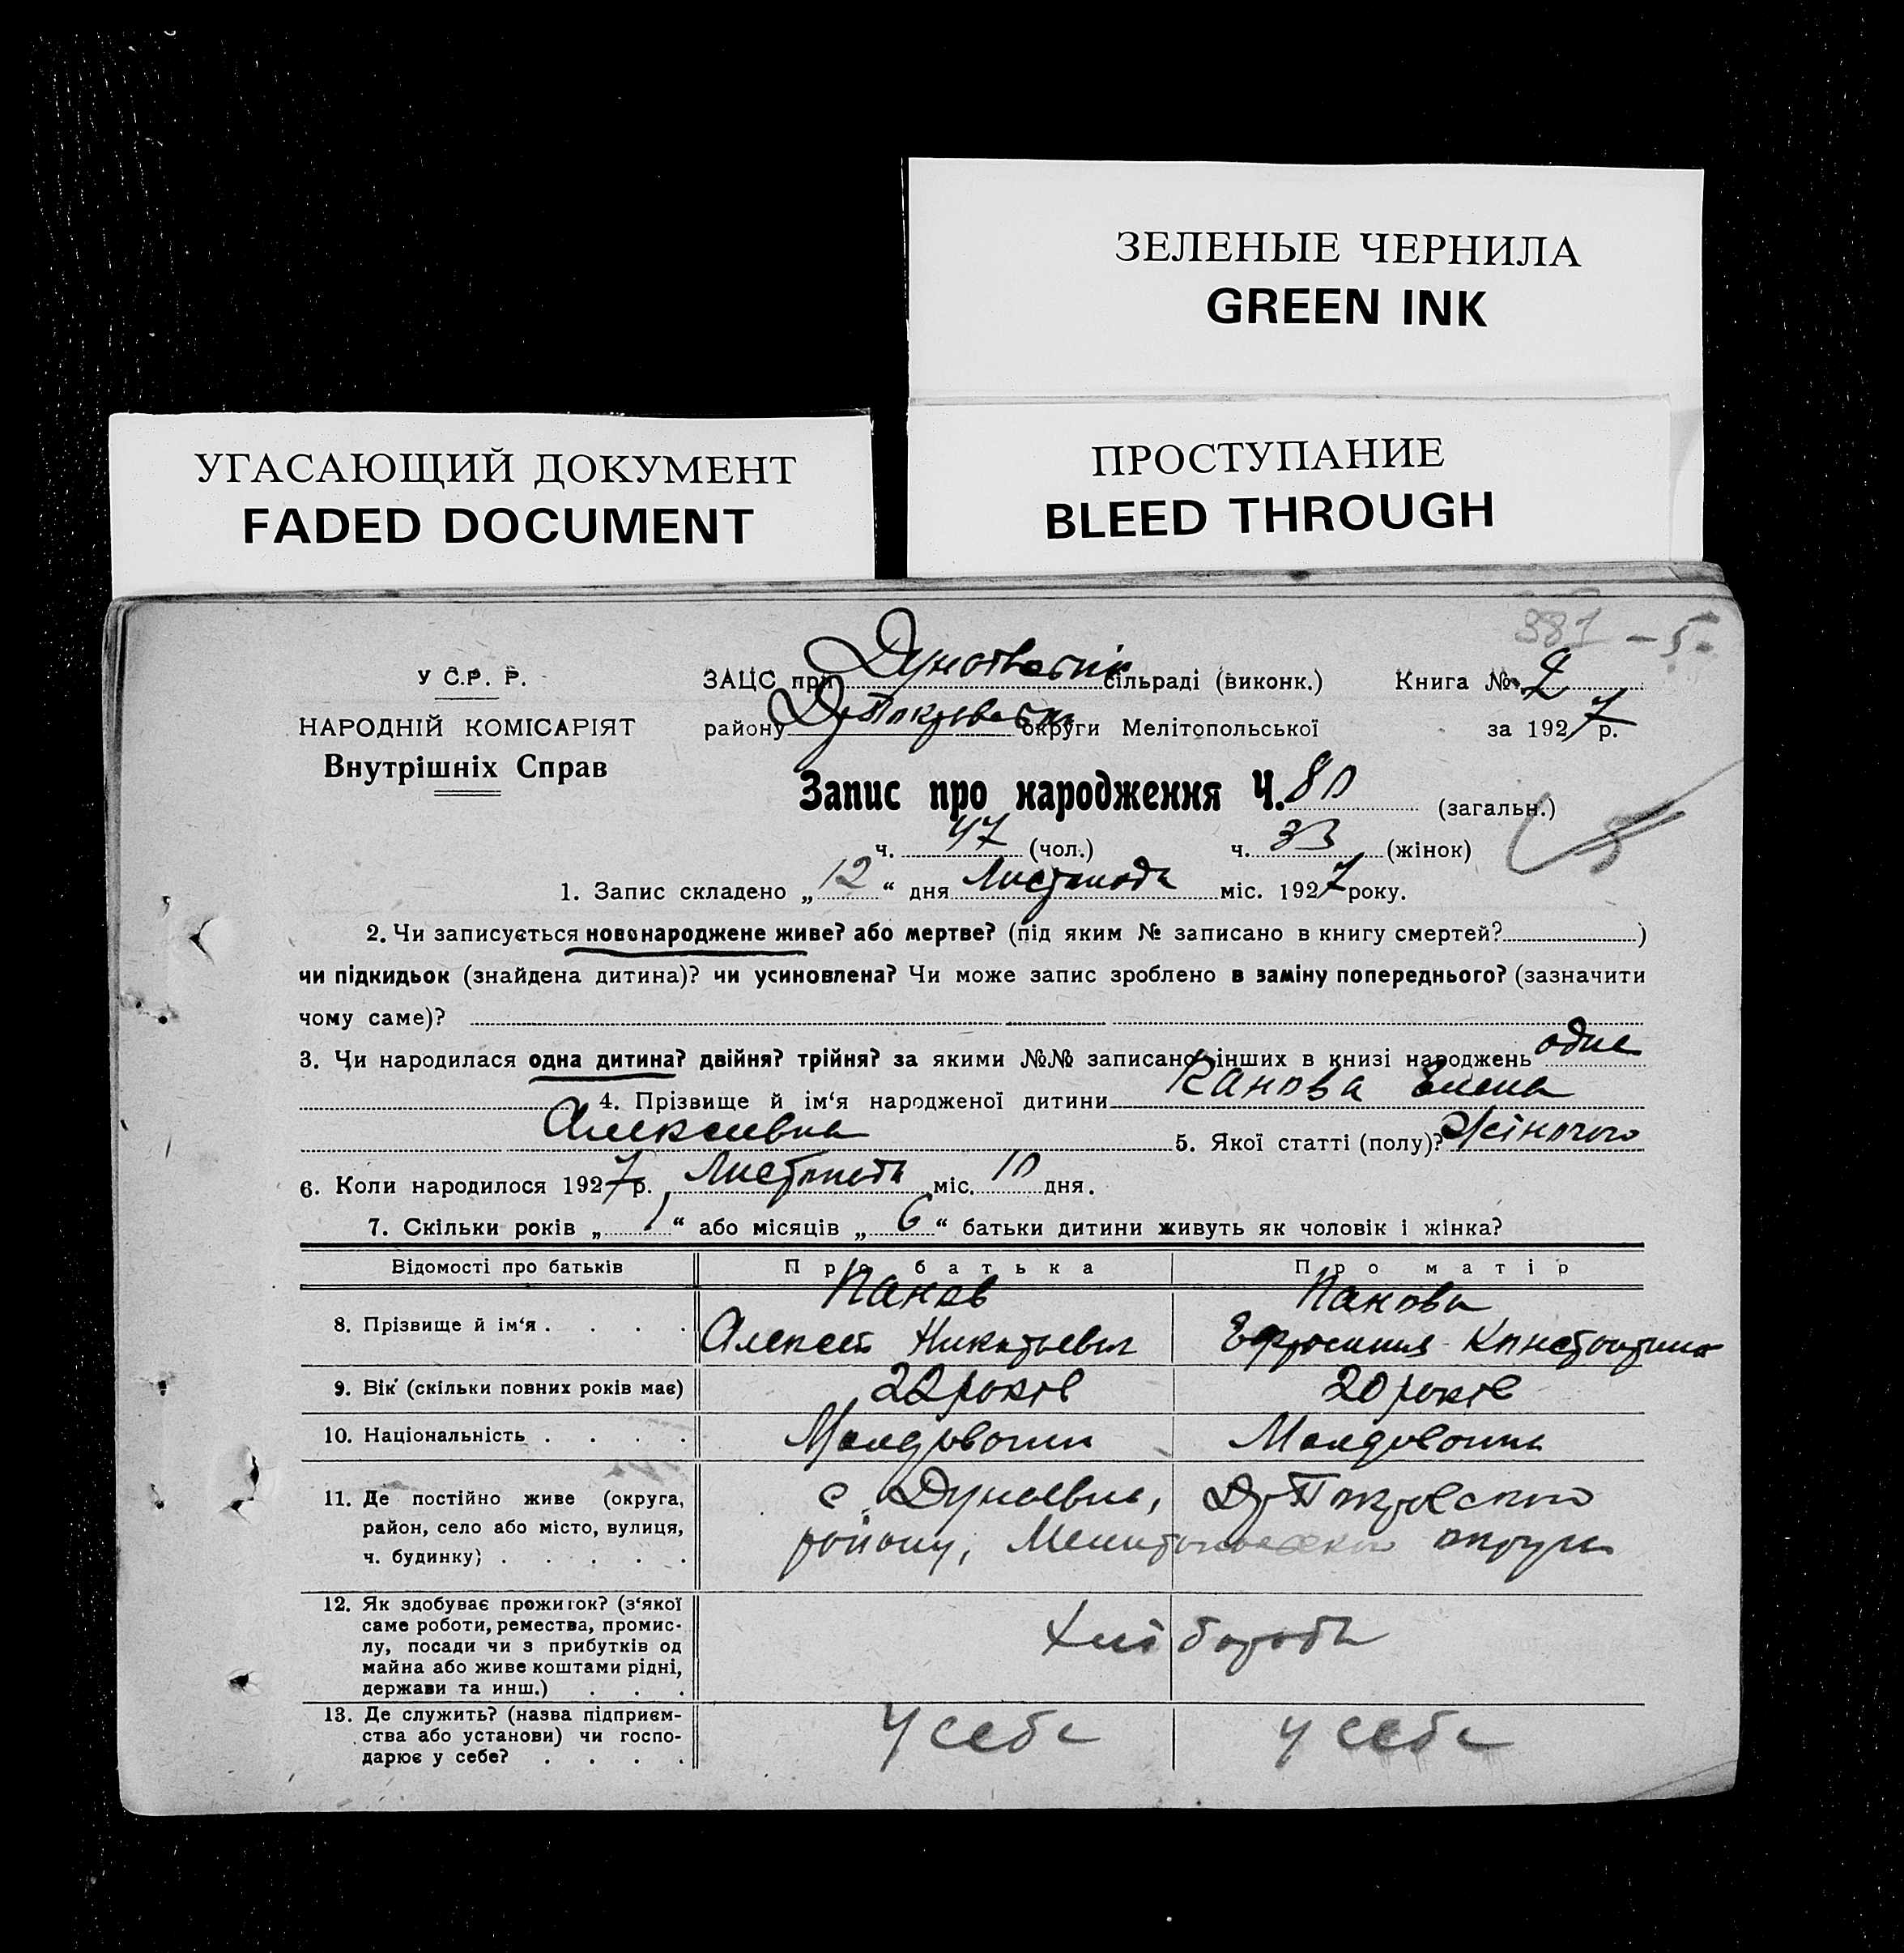 ЗЕЛЕНЫЕ ЧЕРНИЛА
GREEN INK
УГАСАЮЩИЙ ДОКУМЕНТ
FADED DOCUMENT
ПРОСТУПАНИЕ
BLEED THROUGH
381 – 5
У С.Р. Р.
НАРОДНІЙ КОМІСАРІЯТ
Внутрішніх Справ
ЗАЦС при сільраді (виконк.) Книга № 2
району округи Мелітопольської за 1927 р.
Запис про народження Ч. 80 (загальн.)
ч. 47 (чол.) ч. 33 (жінок)
1. Запис складено „ 12 “ дня Листопада міс. 1927 року.
2. Чи записується новонароджене живе? або мертве? (під яким № записано в книгу смертей? )
чи підкидьок (знайдена дитина)? чи усиновлена? Чи може запис зроблено в заміну попереднього? (зазначити
чому саме)?
3. Чи народилася одна дитина? двійня? трійня? за якими №№ записано інших в книзі народжень одне
4. Прізвище й ім‘я народженої дитини Панова Елена
Алексеевна 5. Якої статті (полу)? Жіночого
6. Коли народилося 1927 р. Листопада міс. 10 дня.
7. Скільки років „ 1 “ або місяців „ 6 “ батьки дитини живуть як чоловік і жінка?
Відомості про батьків Про батька Про матір
8. Прізвище й ім‘я . . . . Панов Алексей Панова Ефросиния
9. Вік (скільки повних років має) 22 років 20 років
10. Національність . . . .
11. Де постійно живе (округа,
район, село або місто, вулиця,
ч. будинку) . . . . .
с. Дунаевка,
району, округи
12. Як здобуває прожиток? (з‘якої
саме роботи, ремества, промис-
лу, посади чи з прибутків од
майна або живе коштами рідні,
держави та инш.) . . .
Хлібороби
13. Де служить? (назва підприєм-
ства або установи) чи госпо-
дарює у себе? . . . .
У себе у себе